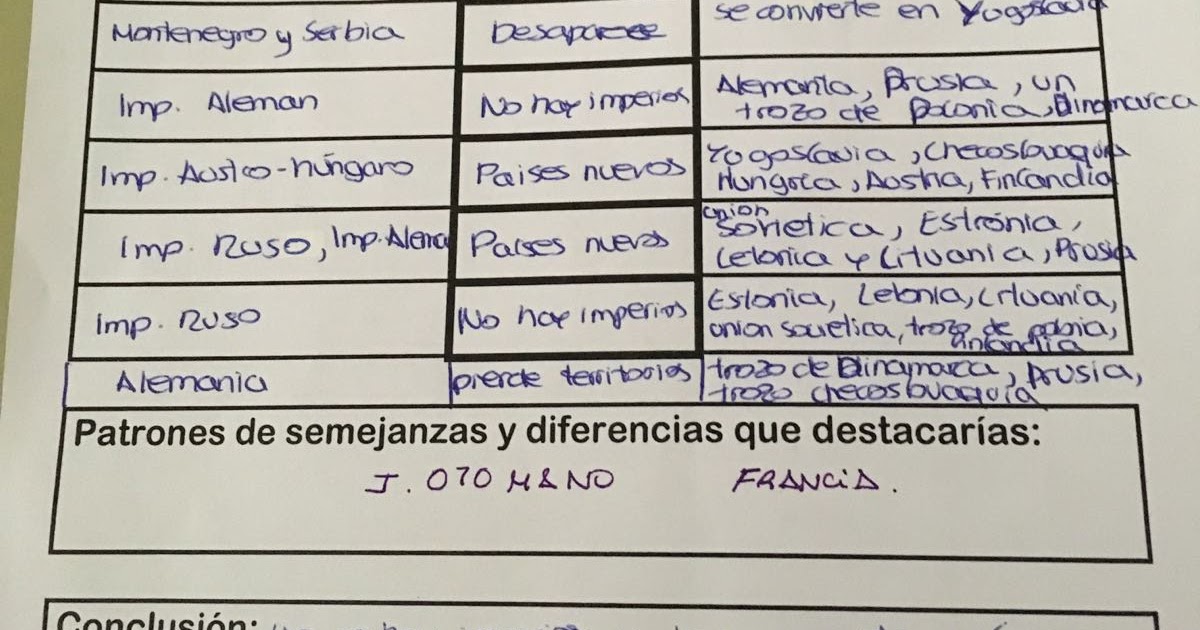 se convierte en Yugoslavia
Montenegro y Serbia Desaparece
Imp. Aleman No hay imperios Alemania, Prusia, un
trozo de Polonia, Dinamarca
Imp. Austro-húngaro Paises nuevos Yogoslavia, Checoslovaquia
Hungria, Austria, Finlandia
Imp. Ruso, Imp. Alema Paises nuevos union
Sovietica, Estonia,
Letonia y Lituania, Prusia
Imp. Ruso No hay imperios Estonia, Letonia, Lituania,
union sovietica, trozo de polonia,
finlandia
Alemania pierde territorios trozo de Dinamarca, prusia,
trozo checoslovaquia
Patrones de semejanzas y diferencias que destacarías:
I. OTOMANO FRANCIA.
Conclusión: